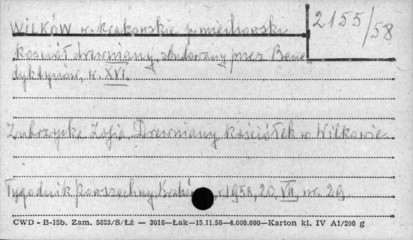 WILKÓW w. krakowskie p. miechowski
2155/58
kościół drewniany zbudowany przez Bene
dyktynów, w. XVI.
Zubrzycka Zofia Drewniany kościółek w Wilkowie
Tygodnik Powszechny Kraków 1958, 20.VII, nr. 29
CWD - B-15b. Zam. 5823/S/Łż — 3016—Łak—15.11.56—4.000.000—Karton kl. IV A1/200 g